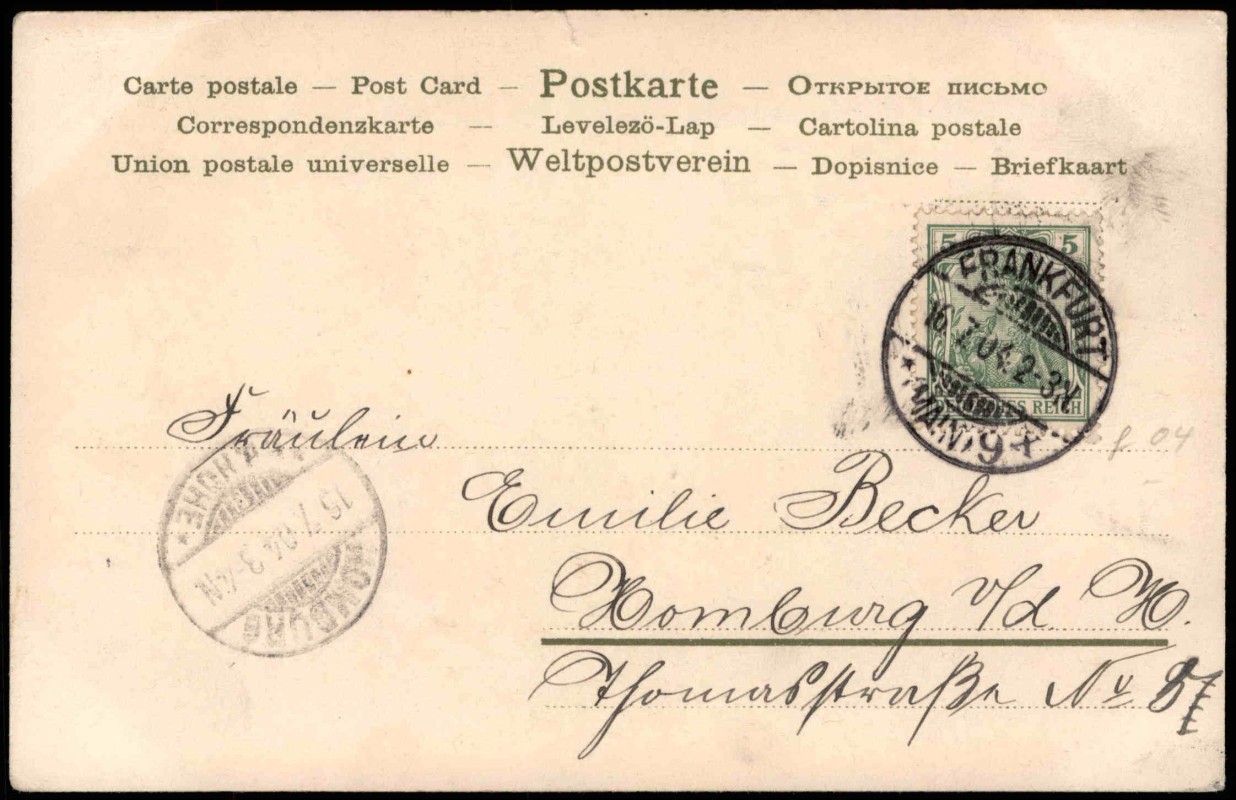 Carte postale — Post Card — Postkarte — Открытое письмо
Correspondenzkarte — Levelezö-Lap — Cartolina postale
Union postale universelle — Weltpostverein — Dopisnice — Briefkaart
5 5
REICH
FRANKFURT
16.7.04. 2-3N
* (MAIN) 9
04
Fräulein
Emilie Becker
Homburg v/d. H.
Thomasstraße No
HOMBURG
15.7.04. 3-4N
HÖHE *